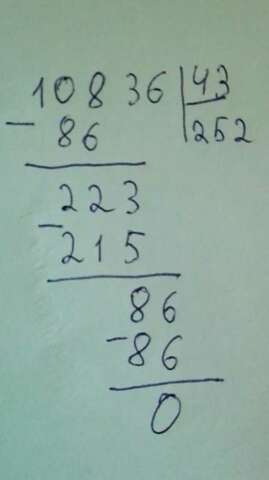 10836 | 43
- 86 | 252
223
- 215
86
- 86
0